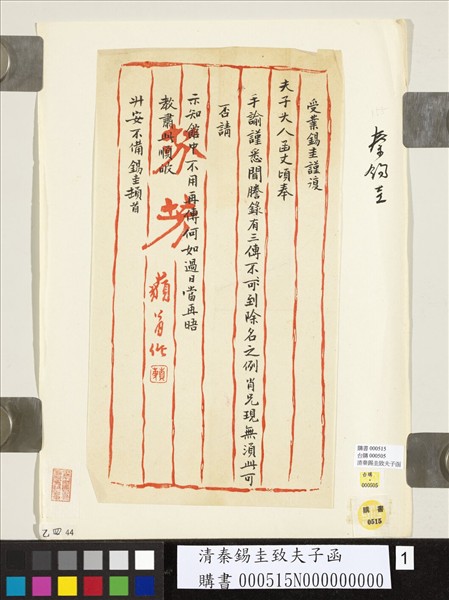 受業錫圭謹復
夫子大人函丈頃奉
手諭謹悉聞謄錄有三傳不可到除名之例肖兄現無須此可
否請
示知館中不用再傳何如過日當再晤
教肅此順敂
升安不備錫圭頓首
秦錫圭
購書 000515
台購 000505
清秦錫圭致夫子函
台購
000505
購書
0515
乙 四 44
清秦錫圭致夫子函
購書 000515N000000000
1